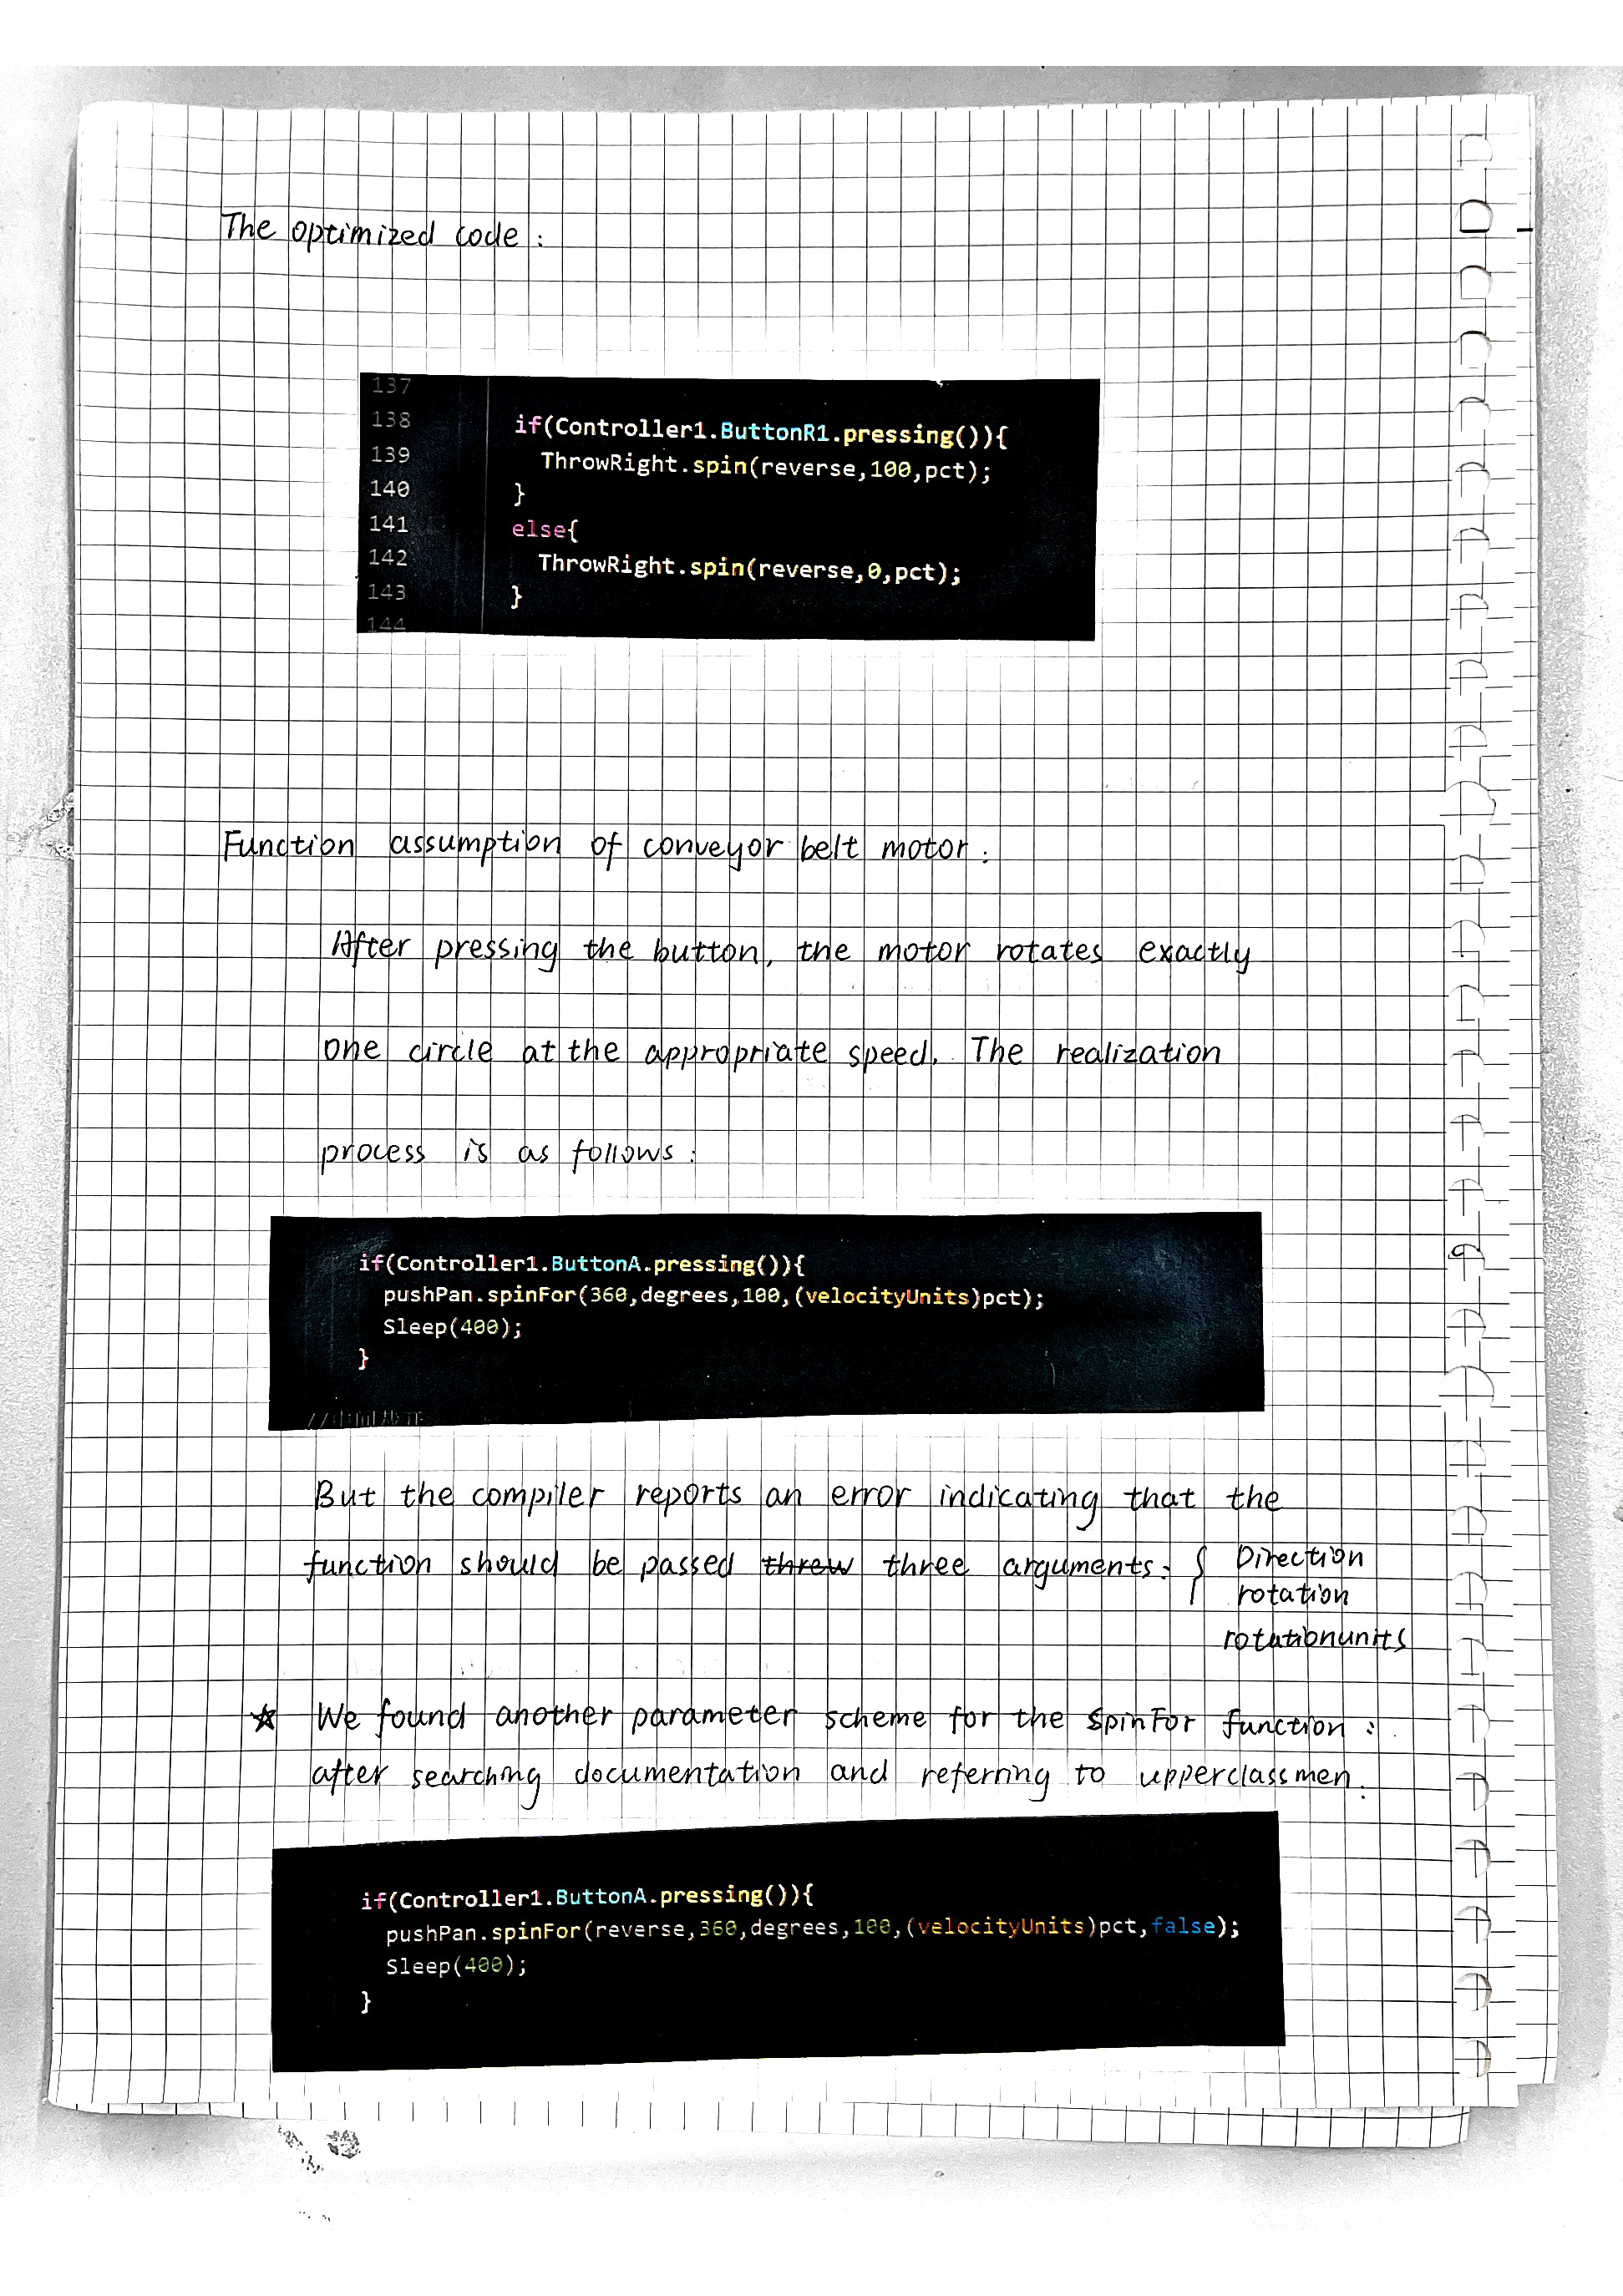 The optimized code :
137
138 if(Controller1.ButtonR1.pressing()){
139 ThrowRight.spin(reverse,100,pct);
140 }
141 else{
142 ThrowRight.spin(reverse,0,pct);
143 }
144
Function assumption of conveyor belt motor :
After pressing the button, the motor rotates exactly
one circle at the appropriate speed. The realization
process is as follows :
if(Controller1.ButtonA.pressing()){
pushPan.spinFor(360,degrees,100,(velocityUnits)pct);
Sleep(400);
}
But the compiler reports an error indicating that the
function should be passed threw three arguments : { Direction
rotation
rotationunits
☆ We found another parameter scheme for the SpinFor function :
after searching documentation and referring to upperclassmen.
if(Controller1.ButtonA.pressing()){
pushPan.spinFor(reverse,360,degrees,100,(velocityUnits)pct,false);
Sleep(400);
}